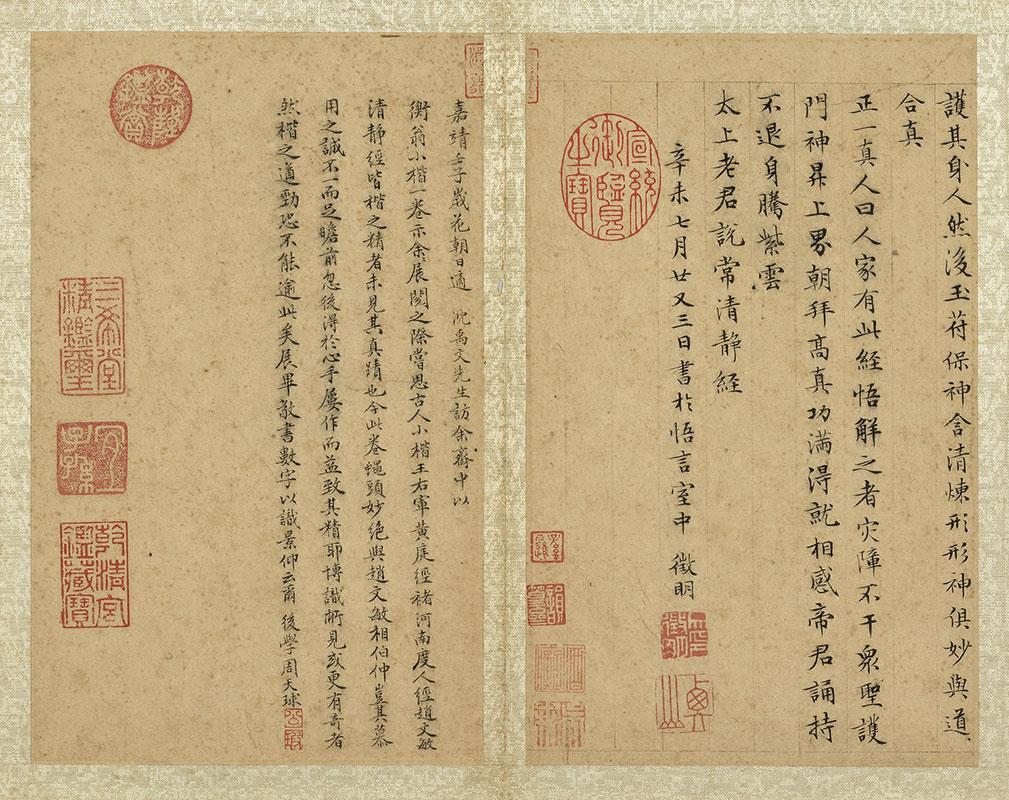 護其身人然後玉苻保神含清煉形形神俱妙與道
合真
正一真人曰人家有此經悟解之者灾障不干衆聖護
門神昇上界朝拜髙真功満得就相感帝君誦持
不退身騰紫雲
太上老君說常清静經
辛未七月廿又三日書於悟言室中 徵明
宣統御覽之寶
嘉靖壬子歲花朝日適 沈禹文先生訪余齋中以
衡翁小楷一卷示余展閱之際嘗思古人小楷王右軍黃庭經褚河南度人經趙文敏
清静經皆楷之精者未見其真蹟也今此卷蠅頭妙絶與趙文敏相伯仲豈其慕
用之誠不一而足瞻前忽後得於心手屢作而益致其精耶博識所見或更有奇者
然楷之遒勁恐不能逾此矣展畢敬書數字以識景仰云爾 後學周天球
乾隆鑑賞
三希堂精鑑璽
宜子孫
乾清宮鑑藏寶